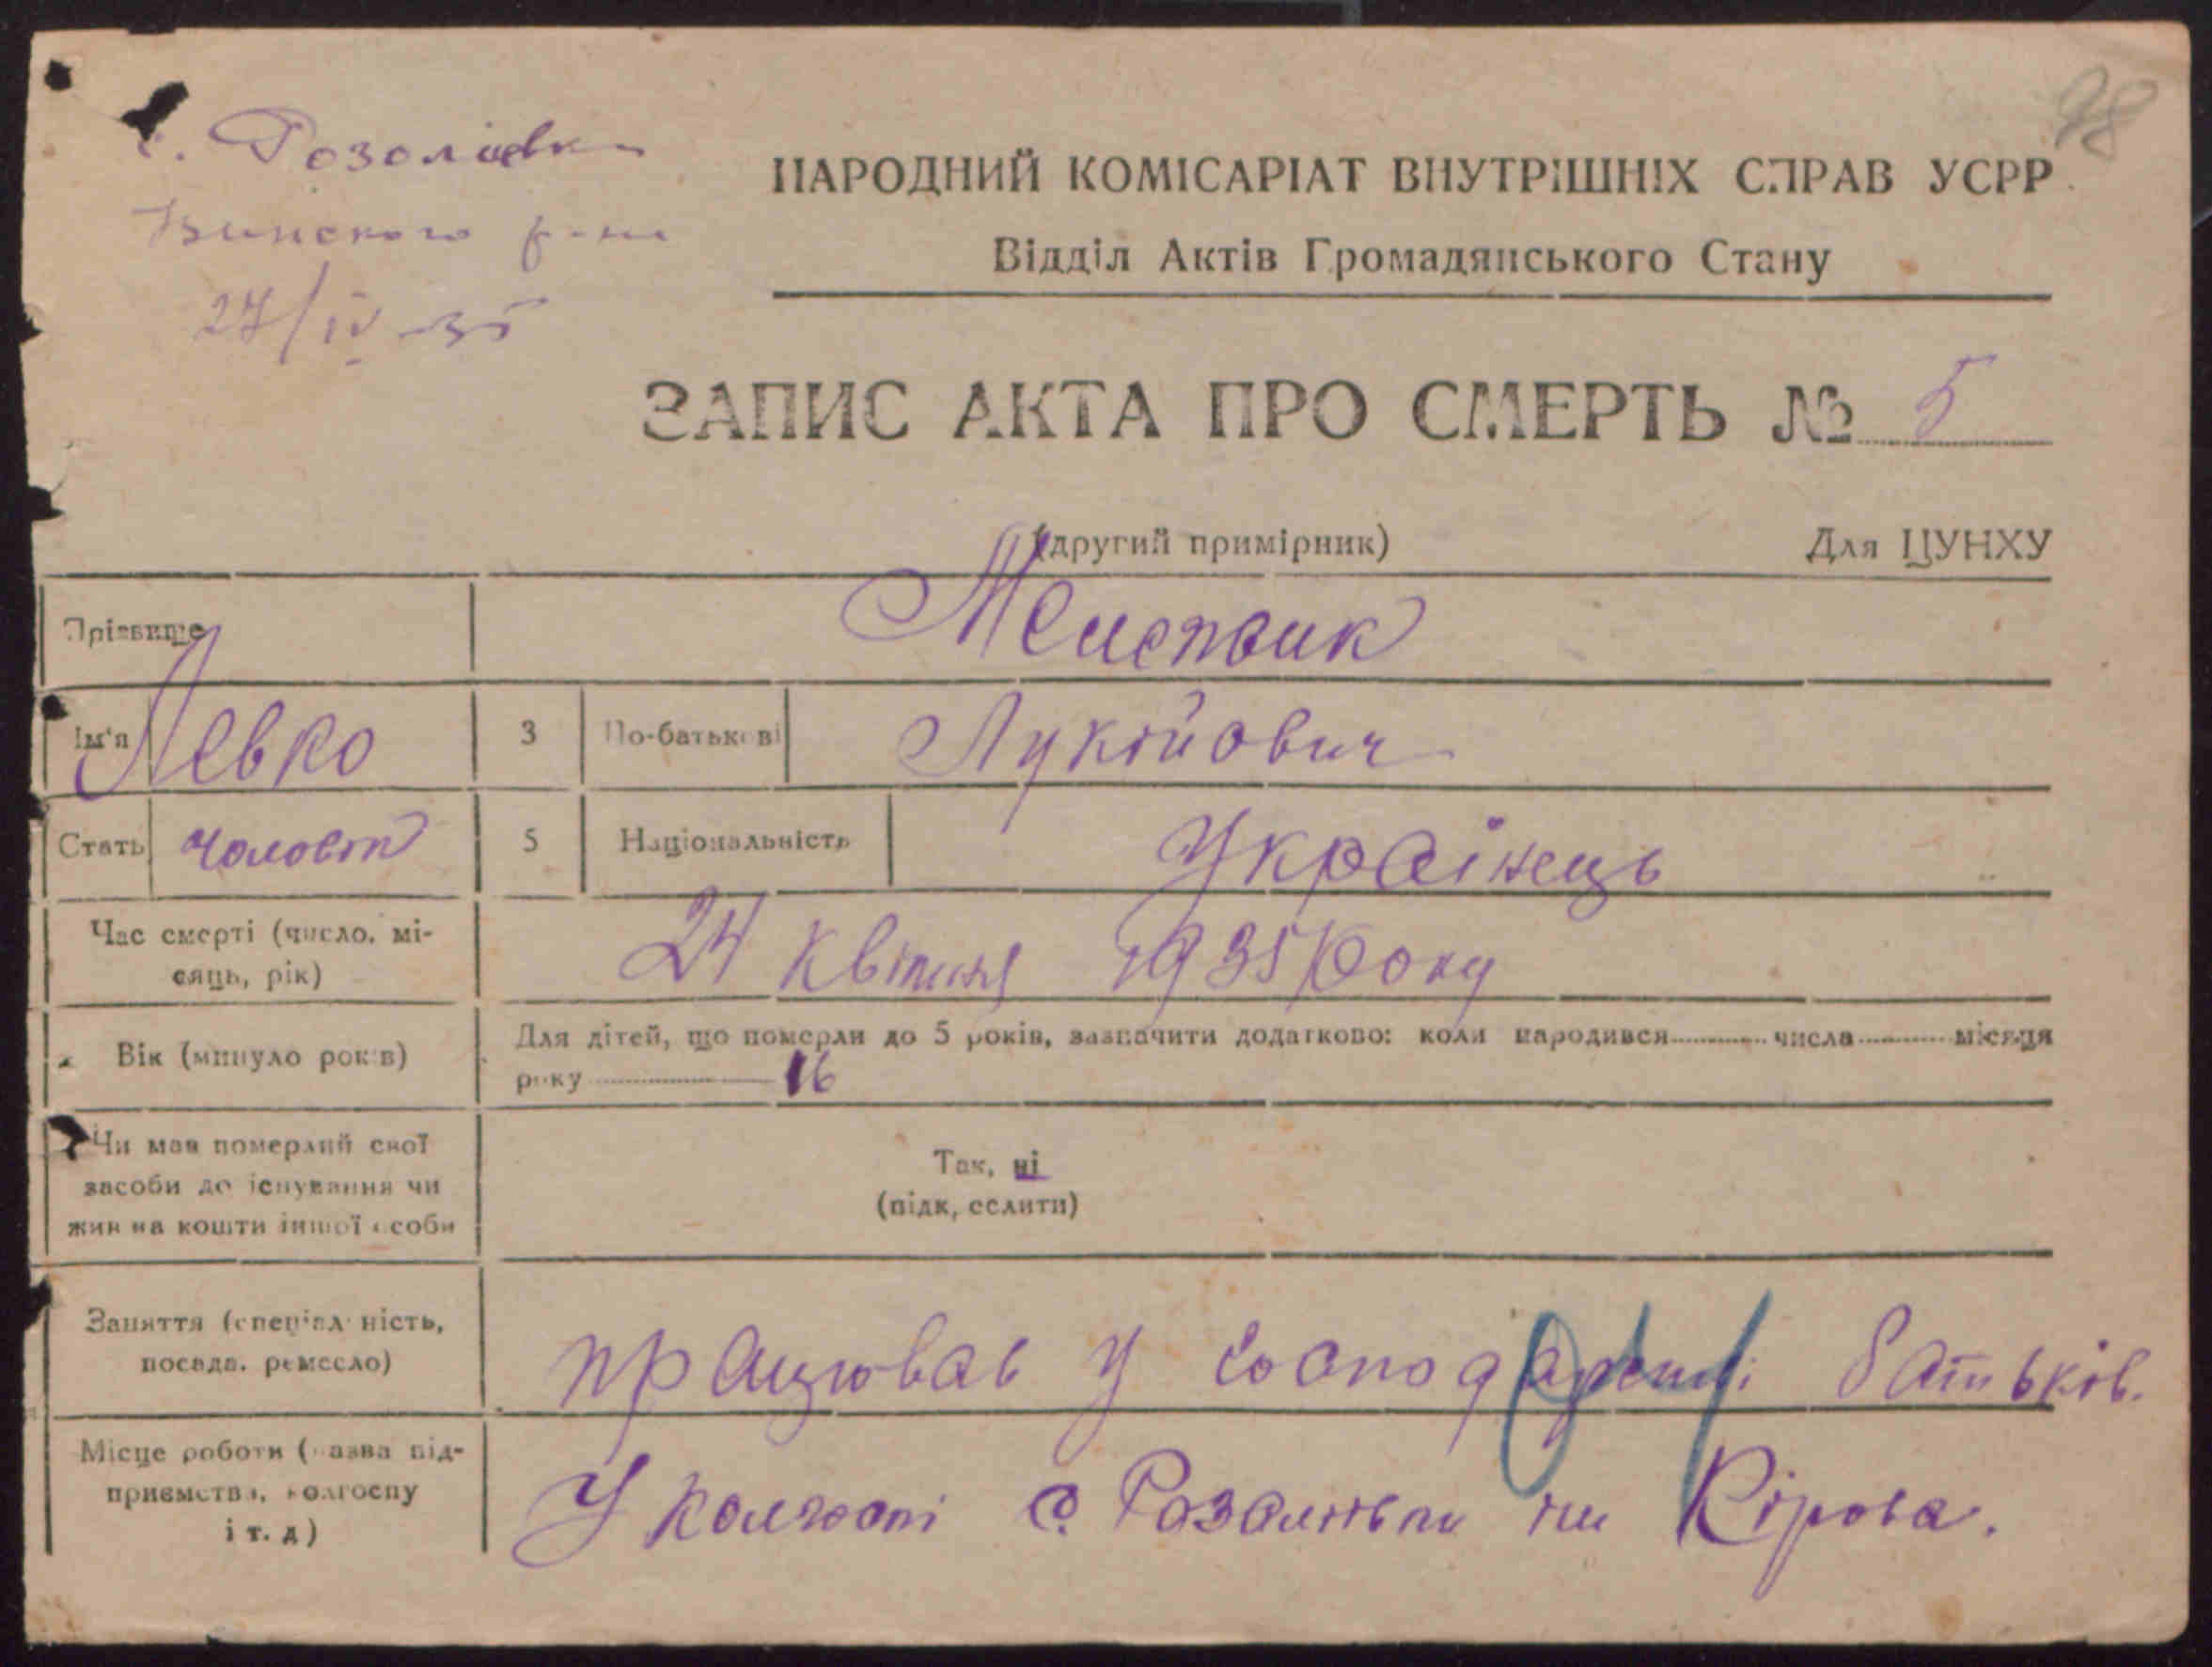 98
с. Розоліївка
р-ну
27/IV-35
НАРОДНИЙ КОМІСАРІАТ ВНУТРІШНІХ СПРАВ УСРР
Відділ Актів Громадянського Стану
ЗАПИС АКТА ПРО СМЕРТЬ № 5
(другий примірник) Для ЦУНХУ
Прізвище
Ім'я Левко 3 По-батькові Лукійович
Стать чоловіч 5 Національність Українець
Час смерті (число, мі-
сяць, рік) 24 квітня 1935 Року
Вік (минуло років) Для дітей, що померли до 5 років, зазначити додатково: коли народився числа місяця
року 16
Чи мав померлий свої
засоби до існування чи
жив на кошти іншої особи
Так, ні
(підкреслити)
Заняття (спеціальність,
посада, ремесло) працював у господарстві батьків.
Місце роботи (назва під-
приємства, колгоспу
і т. д) У колгоспі с. Розоліївки ім Кірова.